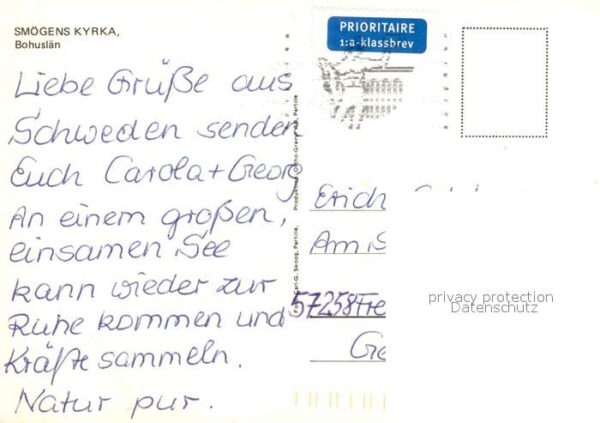 SMÖGENS KYRKA,
Bohuslän
PRIORITAIRE
1:a-klassbrev
Liebe Grüße aus
Schweden senden
Euch Carola + Georg
An einem großen,
einsamen See
kann wieder zur
Ruhe kommen und
Kräfte sammeln.
Natur pur.
Erich
Am S
57258 Fre
Ge
privacy protection
Datenschutz